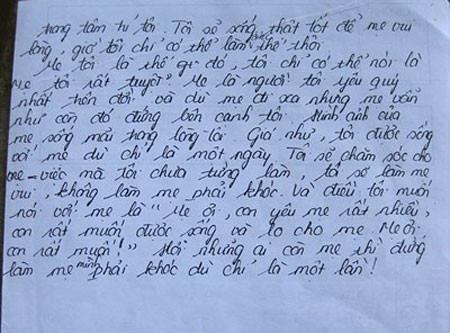 trong tâm trí tôi. Tôi sẽ sống thật tốt để mẹ vui
lòng, giờ tôi chỉ có thể làm thế thôi.
Mẹ tôi là thế đó, tôi chỉ có thể nói là
mẹ tôi rất tuyệt. Mẹ là người tôi yêu quý
nhất trên đời. và dù mẹ đi xa nhưng mẹ vẫn
như còn đó đứng bên cạnh tôi. Hình ảnh của
mẹ sống mãi trong lòng tôi. Giá như, tôi được sống
với mẹ dù chỉ là một ngày. Tôi sẽ chăm sóc cho
mẹ - việc mà tôi chưa từng làm, tôi sẽ làm mẹ
vui, không làm mẹ phải khóc. Và điều tôi muốn
nói với mẹ là "Mẹ ơi, con yêu mẹ rất nhiều,
con rất muốn được sống và lo cho mẹ. Mẹ ơi
con rất muốn!" Hỡi những ai còn mẹ thì đừng
làm mẹ mình phải khóc dù chỉ là một lần!